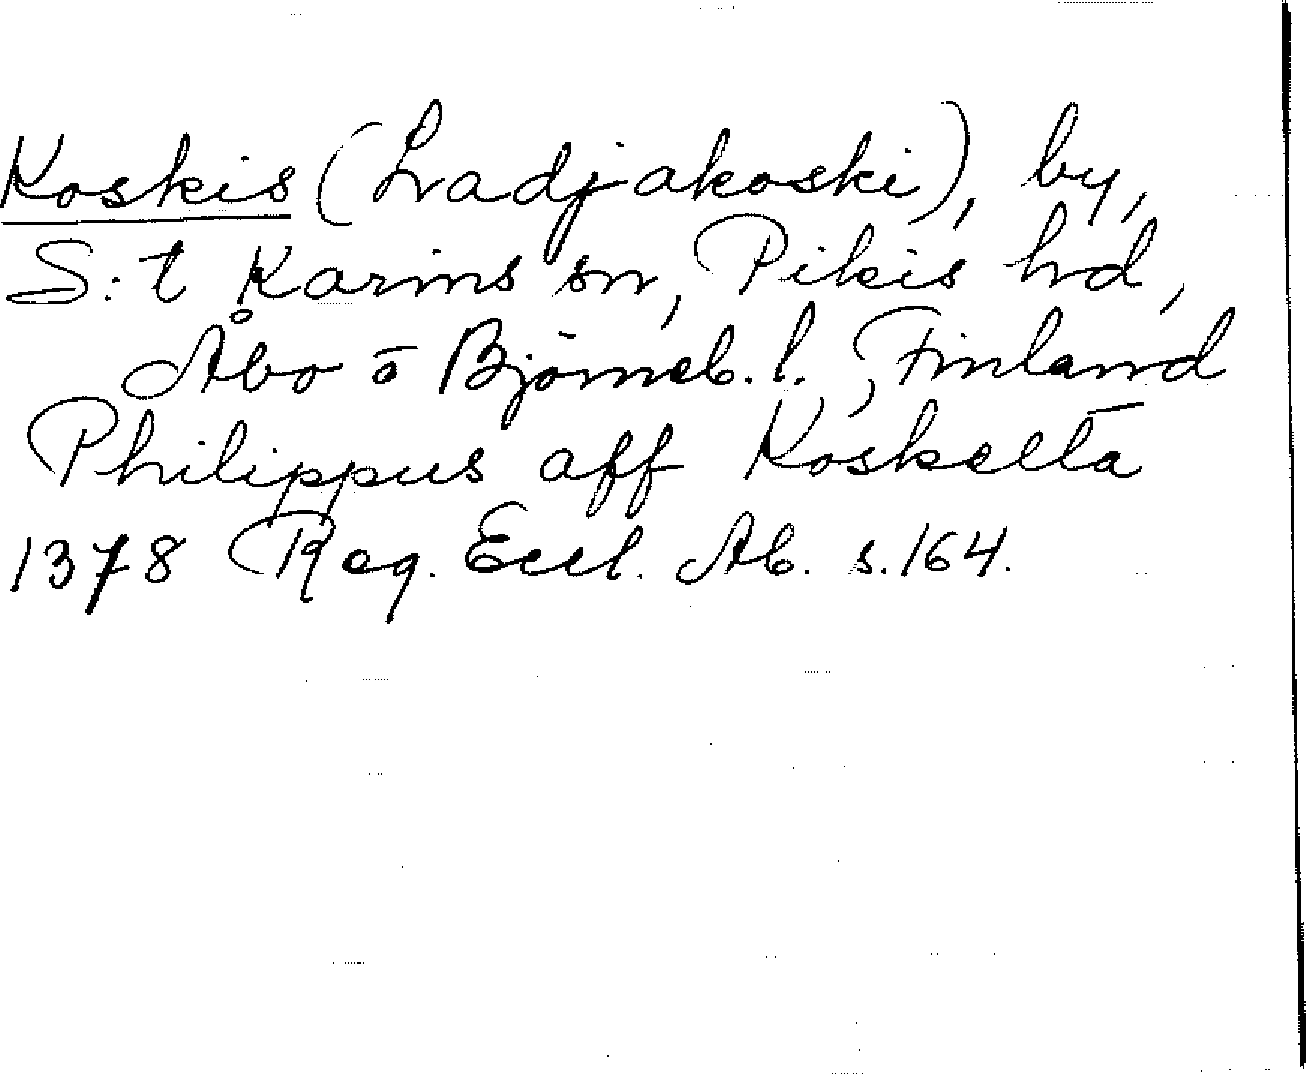 Koskis (Ladjakoski), by,
S:t Karins sn, Pikis hd,
Åbo o Björneb. l., Finland
Philippus aff Koskella
1378 Reg. Eccl. Ab. s. 164.